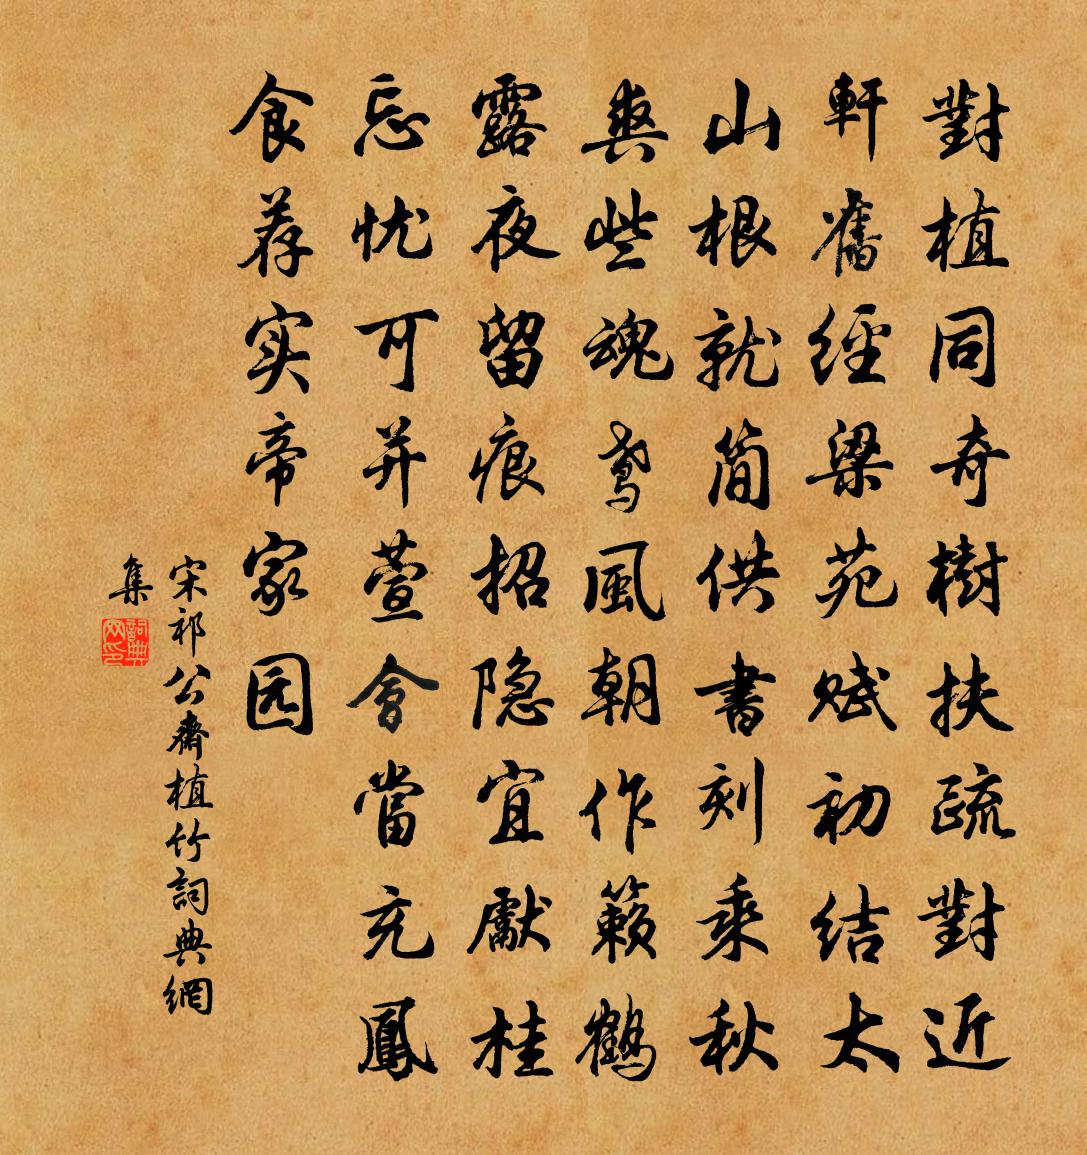 對植同奇樹扶疏對近
軒舊經梁苑賦初結太
山根就简供書刻乘秋
爽些魂鳶風朝作籟鶴
露夜留痕招隐宜獻桂
忘忧可并萱會當充鳳
食荐实帝家园
宋祁公齋植竹詞典網
集
詞典
网印